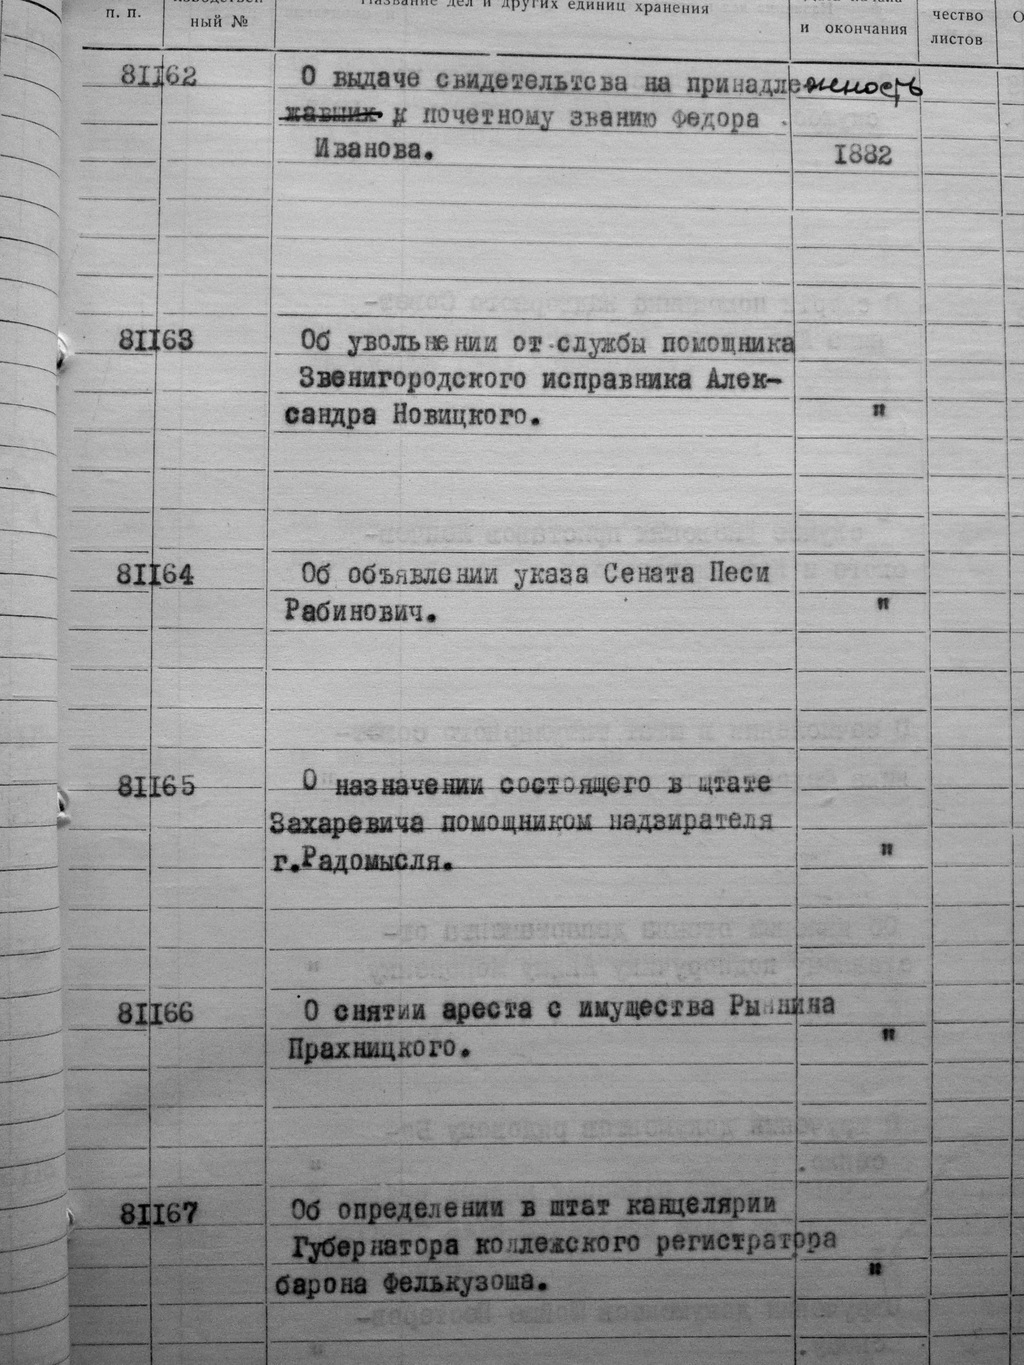 п. п.
ный №
Название дел и других единиц хранения
и окончания
чество
листов
81162 О выдаче свидетельтсва на принадлежность
жавших к почетному званию Федора
Иванова. 1882
81163 Об увольнении от службы помощника
Звенигородского исправника Алек-
сандра Новицкого. "
81164 Об объявлении указа Сената Песи
Рабинович. "
81165 О назначении состоящего в штате
Захаревича помощником надзирателя
г.Радомысля. "
81166 О снятии ареста с имущества
Прахницкого. "
81167 Об определении в штат канцелярии
Губернатора коллежского регистратора
барона Фелькузоша. "